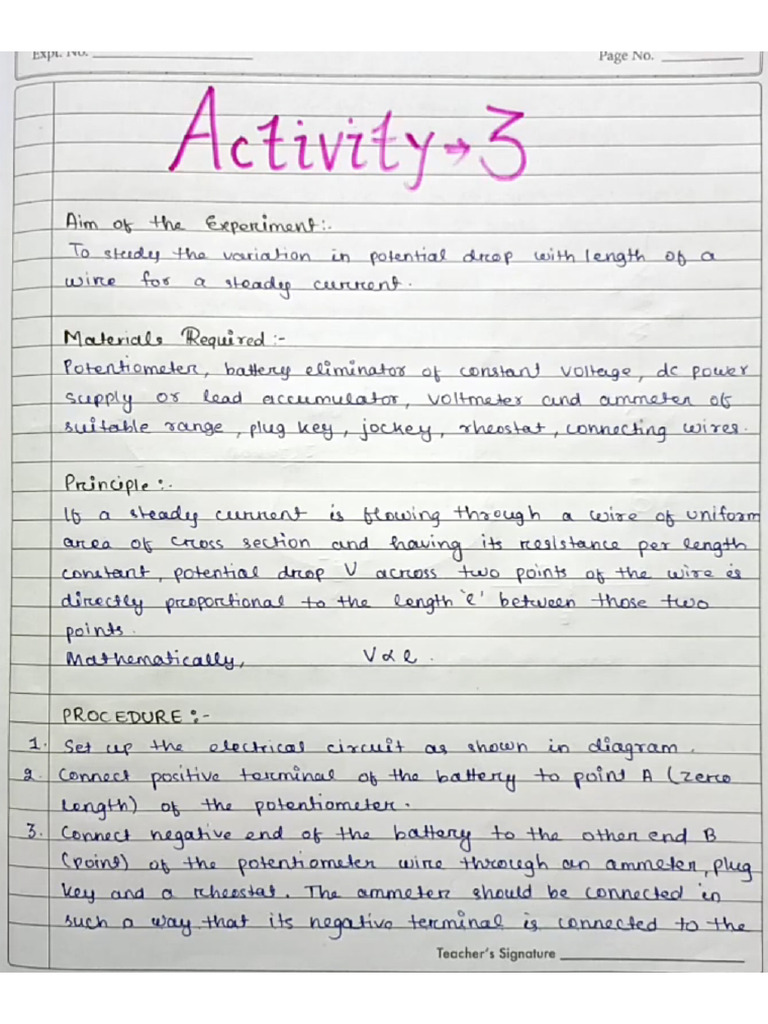 Expt. No.
Page No.
Activity → 3
Aim of the Experiment:-
To study the variation in potential drop with length of a
wire for a steady current.
Materials Required :-
Potentiometer, battery eliminator of constant voltage, dc power
supply or lead accumulator, voltmeter and ammeter of
suitable range, plug key, jockey, rheostat, connecting wires.
Principle :-
If a steady current is flowing through a wire of uniform
area of cross section and having its resistance per length
constant, potential drop V across two points of the wire is
directly proportional to the length 'l' between those two
points.
Mathematically, V ∝ l.
PROCEDURE :-
1. Set up the electrical circuit as shown in diagram.
2. Connect positive terminal of the battery to point A (zero
length) of the potentiometer.
3. Connect negative end of the battery to the other end B
(point) of the potentiometer wire through an ammeter, plug
key and a rheostat. The ammeter should be connected in
such a way that its negative terminal is connected to the
Teacher's Signature